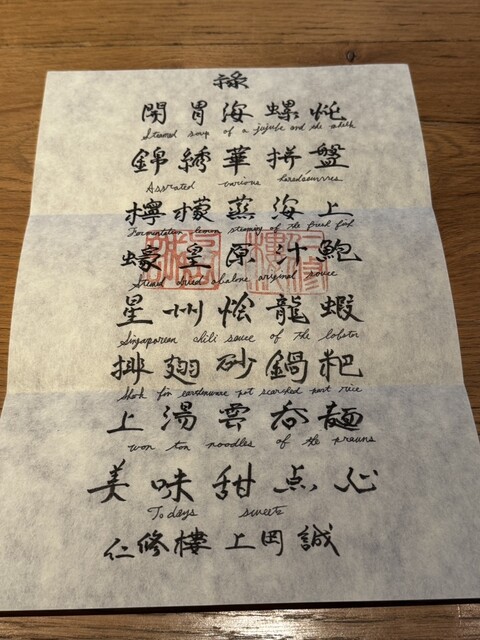 開胃海螺炖
Steamed soup of a jujube and the
錦綉華拼盤
檸檬蒸海上
Fermentation lemon steaming of the fresh fish
蠔皇原汁鮑
Steamed dried abalone original souce
星州烩龍蝦
Singaporean chili sauce of the lobster
排翅砂鍋粑
Shark fin earthenware pot rice
上湯雲呑麺
won ton noodles of the prauns
美味甜点心
Todays sweets
仁修樓 上岡 誠